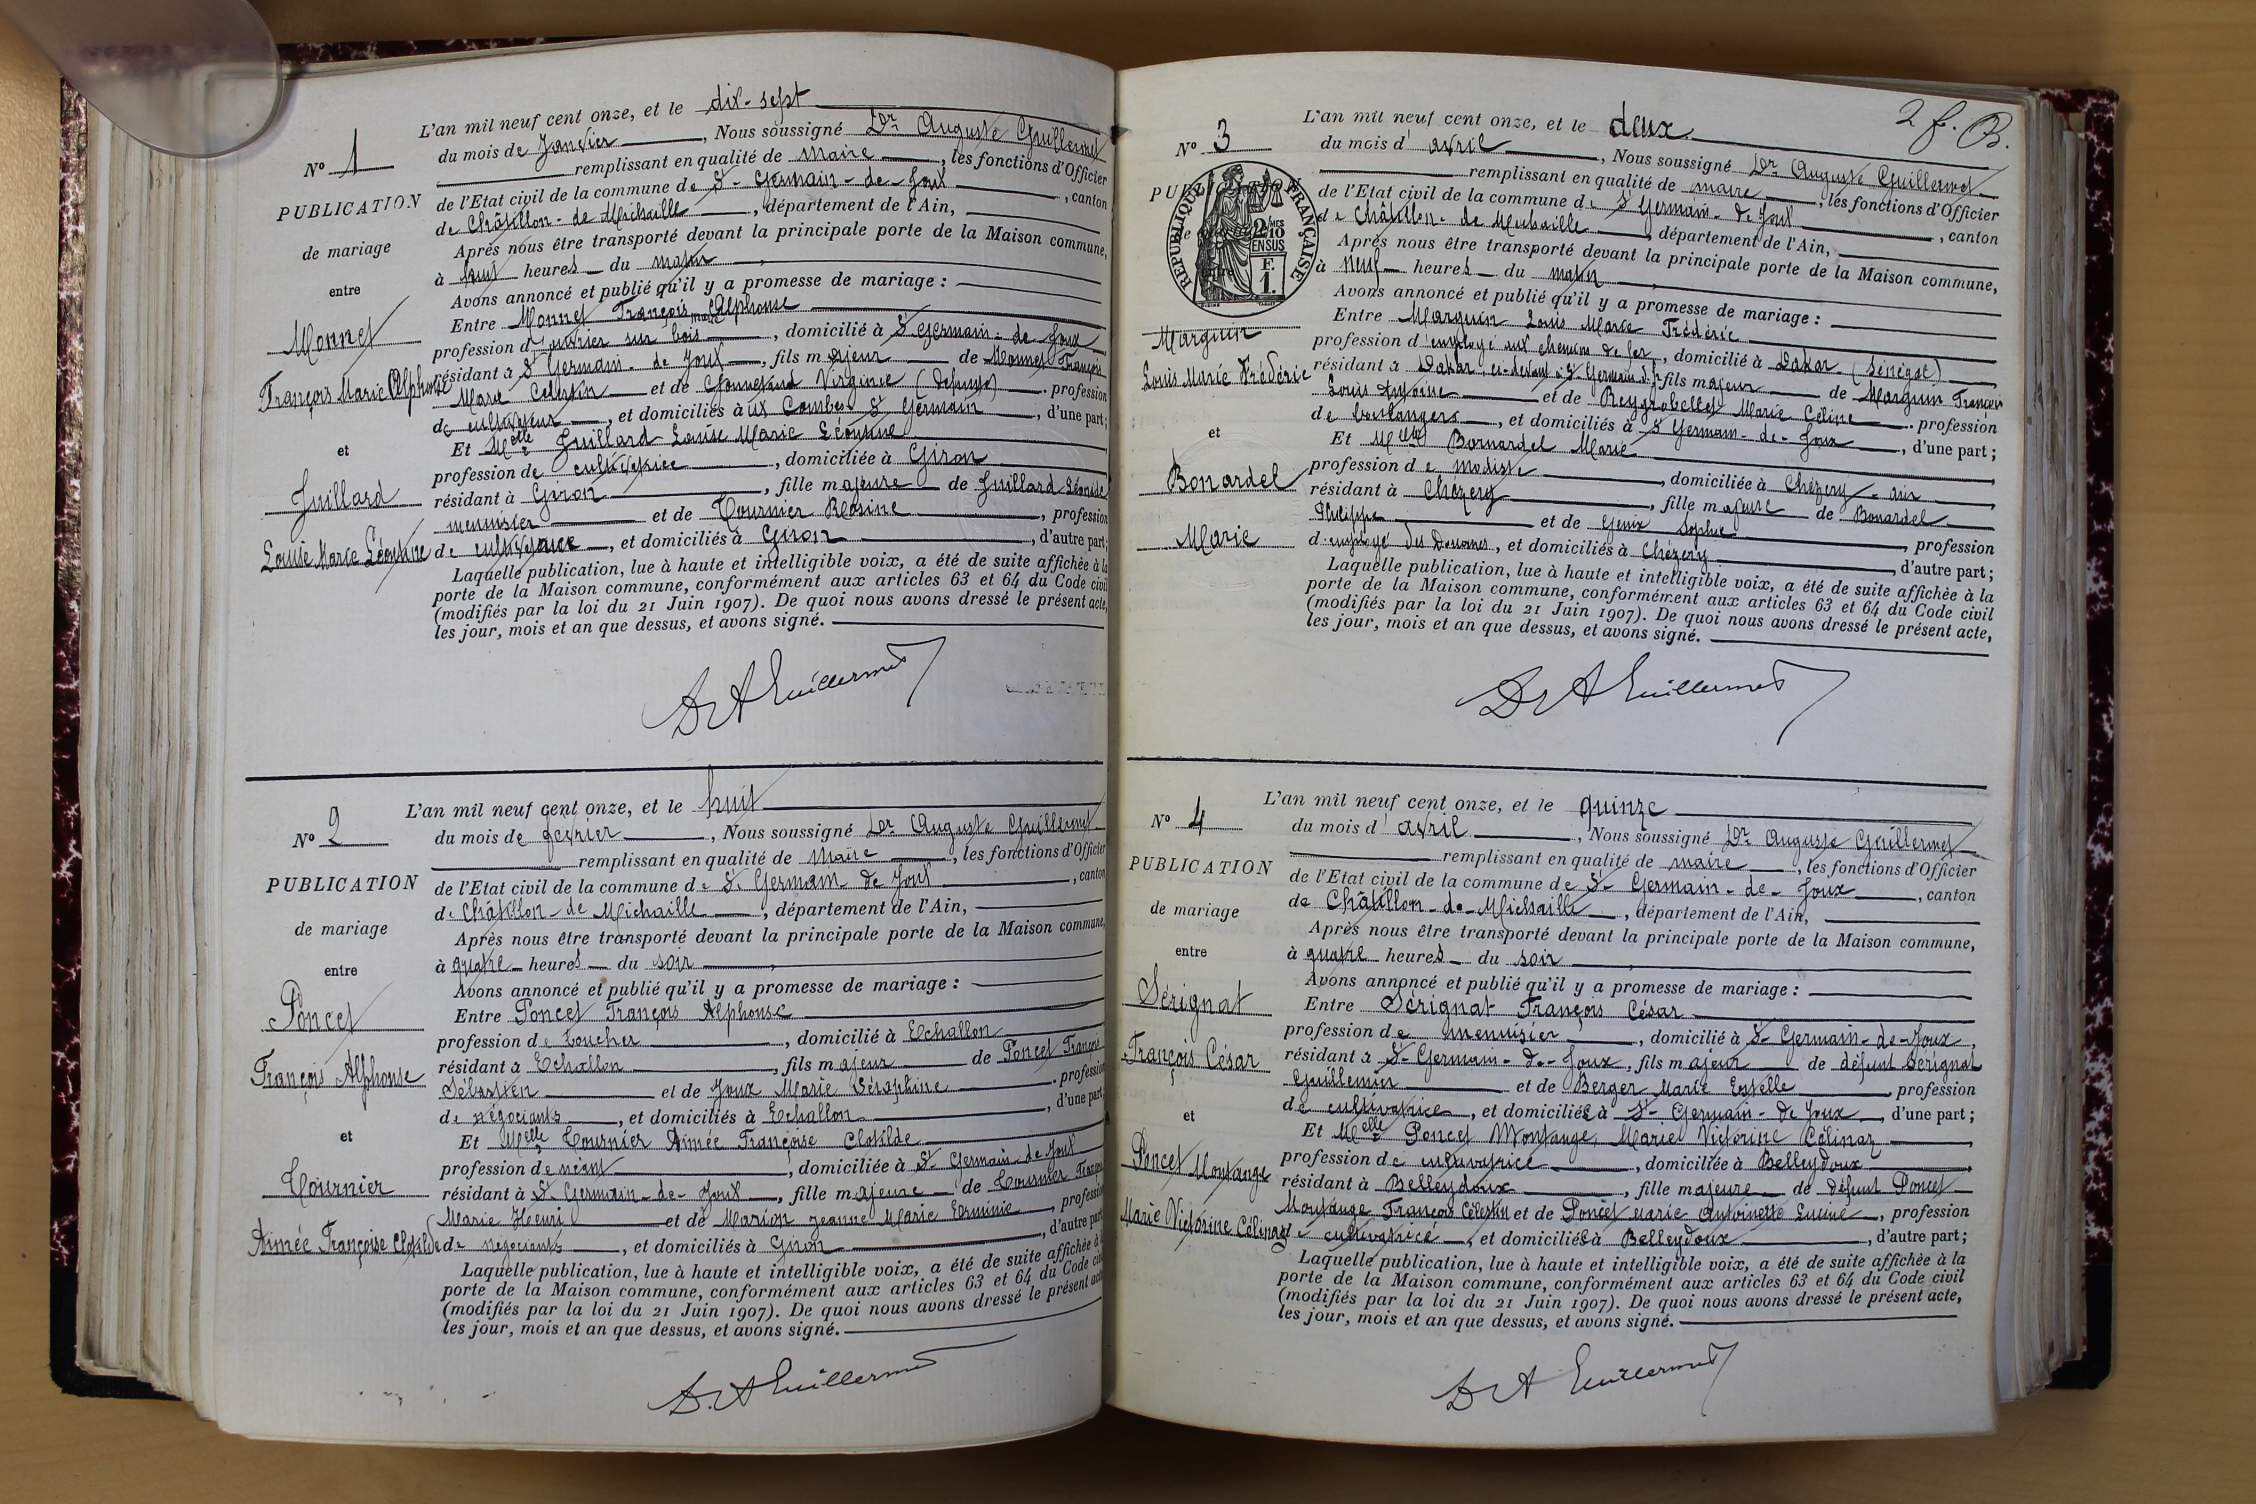 L'an mil neuf cent onze, et le dix-sept
du mois de Janvier, Nous soussigné Dr Auguste Guillermet
remplissant en qualité de Maire, les fonctions d'Officier
de l'Etat civil de la commune de St-Germain-de-Joux, canton
de Châtillon-de-Michaille, département de l'Ain,
Après nous être transporté devant la principale porte de la Maison commune,
à huit heures du matin,
Avons annoncé et publié qu'il y a promesse de mariage :
Entre Monnet François Marie Alphonse
profession d'ouvrier sur bois, domicilié à St Germain-de-Joux
résidant à St Germain-de-Joux, fils majeur de Monnet François
Marie Célestin et de Virginie (défunte). profession
de cultivateur, et domiciliés à ux Combes St Germain, d'une part;
Et Melle Juillard Louise Marie Léontine
profession de cultivatrice, domiciliée à Giron
résidant à Giron, fille majeure de Juillard
menuisier et de Tournier Rosine, profession
de cultivatrice, et domiciliés à Giron, d'autre part;
Laquelle publication, lue à haute et intelligible voix, a été de suite affichée à la
porte de la Maison commune, conformément aux articles 63 et 64 du Code civil
(modifiés par la loi du 21 Juin 1907). De quoi nous avons dressé le présent acte,
les jour, mois et an que dessus, et avons signé.
Dr A Guillermet
N° 1
PUBLICATION
de mariage
entre
Monnet
François Marie Alphonse
et
Juillard
Louise Marie Léontine
L'an mil neuf cent onze, et le huit
du mois de février, Nous soussigné Dr Auguste Guillermet
remplissant en qualité de Maire, les fonctions d'Officier
de l'Etat civil de la commune de St Germain-de Joux, canton
de Châtillon-de Michaille, département de l'Ain,
Après nous être transporté devant la principale porte de la Maison commune,
à quatre heures du soir,
Avons annoncé et publié qu'il y a promesse de mariage :
Entre Poncet François Alphonse
profession de Boucher, domicilié à Echallon
résidant à Echallon, fils majeur de Poncet François
Sébastien et de Joux Marie Séraphine. profession
de négociants, et domiciliés à Echallon, d'une part,
Et Melle Tournier Aimée Françoise Clotilde
profession de néant, domiciliée à St Germain-de Joux
résidant à St Germain-de-Joux, fille majeure de Tournier François
Marie Henri et de Marion Jeanne Marie Herminie, profession
de négociants, et domiciliés à Giron, d'autre part
Laquelle publication, lue à haute et intelligible voix, a été de suite affichée à
porte de la Maison commune, conformément aux articles 63 et 64 du Code civil
(modifiés par la loi du 21 Juin 1907). De quoi nous avons dressé le présent acte
les jour, mois et an que dessus, et avons signé.
Dr A Guillermet
N° 2
PUBLICATION
de mariage
entre
Poncet
François Alphonse
et
Tournier
Aimée Françoise Clotilde
2 f. B.
L'an mil neuf cent onze, et le deux
du mois d'avril, Nous soussigné Dr Auguste Guillermet
remplissant en qualité de maire, les fonctions d'Officier
de l'Etat civil de la commune de St Germain-de Joux, canton
de Châtillon-de Michaille, département de l'Ain,
Après nous être transporté devant la principale porte de la Maison commune,
à neuf heures du matin,
Avons annoncé et publié qu'il y a promesse de mariage :
Entre Marguin Louis Marie Frédéric
profession d'employé aux chemins de fer, domicilié à Dakar (Sénégal)
résidant à Dakar, ci-devant à St Germain d. J. fils majeur de Marguin François
Louis Antoine et de Marie Céline. profession
de boulangers, et domiciliés à St Germain-de-Joux, d'une part;
Et Melle Bonardel Marie
profession de modiste, domiciliée à Chézery-ain
résidant à Chézery, fille majeure de Bonardel
Philippe et de Genix Sophie, profession
d'employé des Douanes, et domiciliés à Chézery, d'autre part;
Laquelle publication, lue à haute et intelligible voix, a été de suite affichée à la
porte de la Maison commune, conformément aux articles 63 et 64 du Code civil
(modifiés par la loi du 21 Juin 1907). De quoi nous avons dressé le présent acte,
les jour, mois et an que dessus, et avons signé.
Dr A Guillermet
N° 3
REPUBLIQUE FRANÇAISE
2/10 MES
EN SUS
F.
1.
entre
Marguin
Louis Marie Frédéric
et
Bonardel
Marie
L'an mil neuf cent onze, et le quinze
du mois d'avril, Nous soussigné Dr Auguste Guillermet
remplissant en qualité de maire, les fonctions d'Officier
de l'Etat civil de la commune de St-Germain-de-Joux, canton
de Châtillon-de-Michaille, département de l'Ain,
Après nous être transporté devant la principale porte de la Maison commune,
à quatre heures du soir,
Avons annoncé et publié qu'il y a promesse de mariage :
Entre Sérignat François César
profession de menuisier, domicilié à St-Germain-de-Joux,
résidant à St-Germain-de-Joux, fils majeur de défunt Sérignat
et de Berger Marie Estelle, profession
de cultivatrice, et domiciliée à St-Germain-de Joux, d'une part;
Et Melle Poncet Montange, Marie Victorine Célinaz
profession de cultivatrice, domiciliée à Belleydoux
résidant à Belleydoux, fille majeure de défunt Poncet
Montange François Célestin et de Poncet Marie Antoinette, profession
de cultivatrice, et domiciliée à Belleydoux, d'autre part;
Laquelle publication, lue à haute et intelligible voix, a été de suite affichée à la
porte de la Maison commune, conformément aux articles 63 et 64 du Code civil
(modifiés par la loi du 21 Juin 1907). De quoi nous avons dressé le présent acte,
les jour, mois et an que dessus, et avons signé.
Dr A Guillermet
N° 4
PUBLICATION
de mariage
entre
Sérignat
François César
et
Poncet Montange
Marie Victorine Célinaz